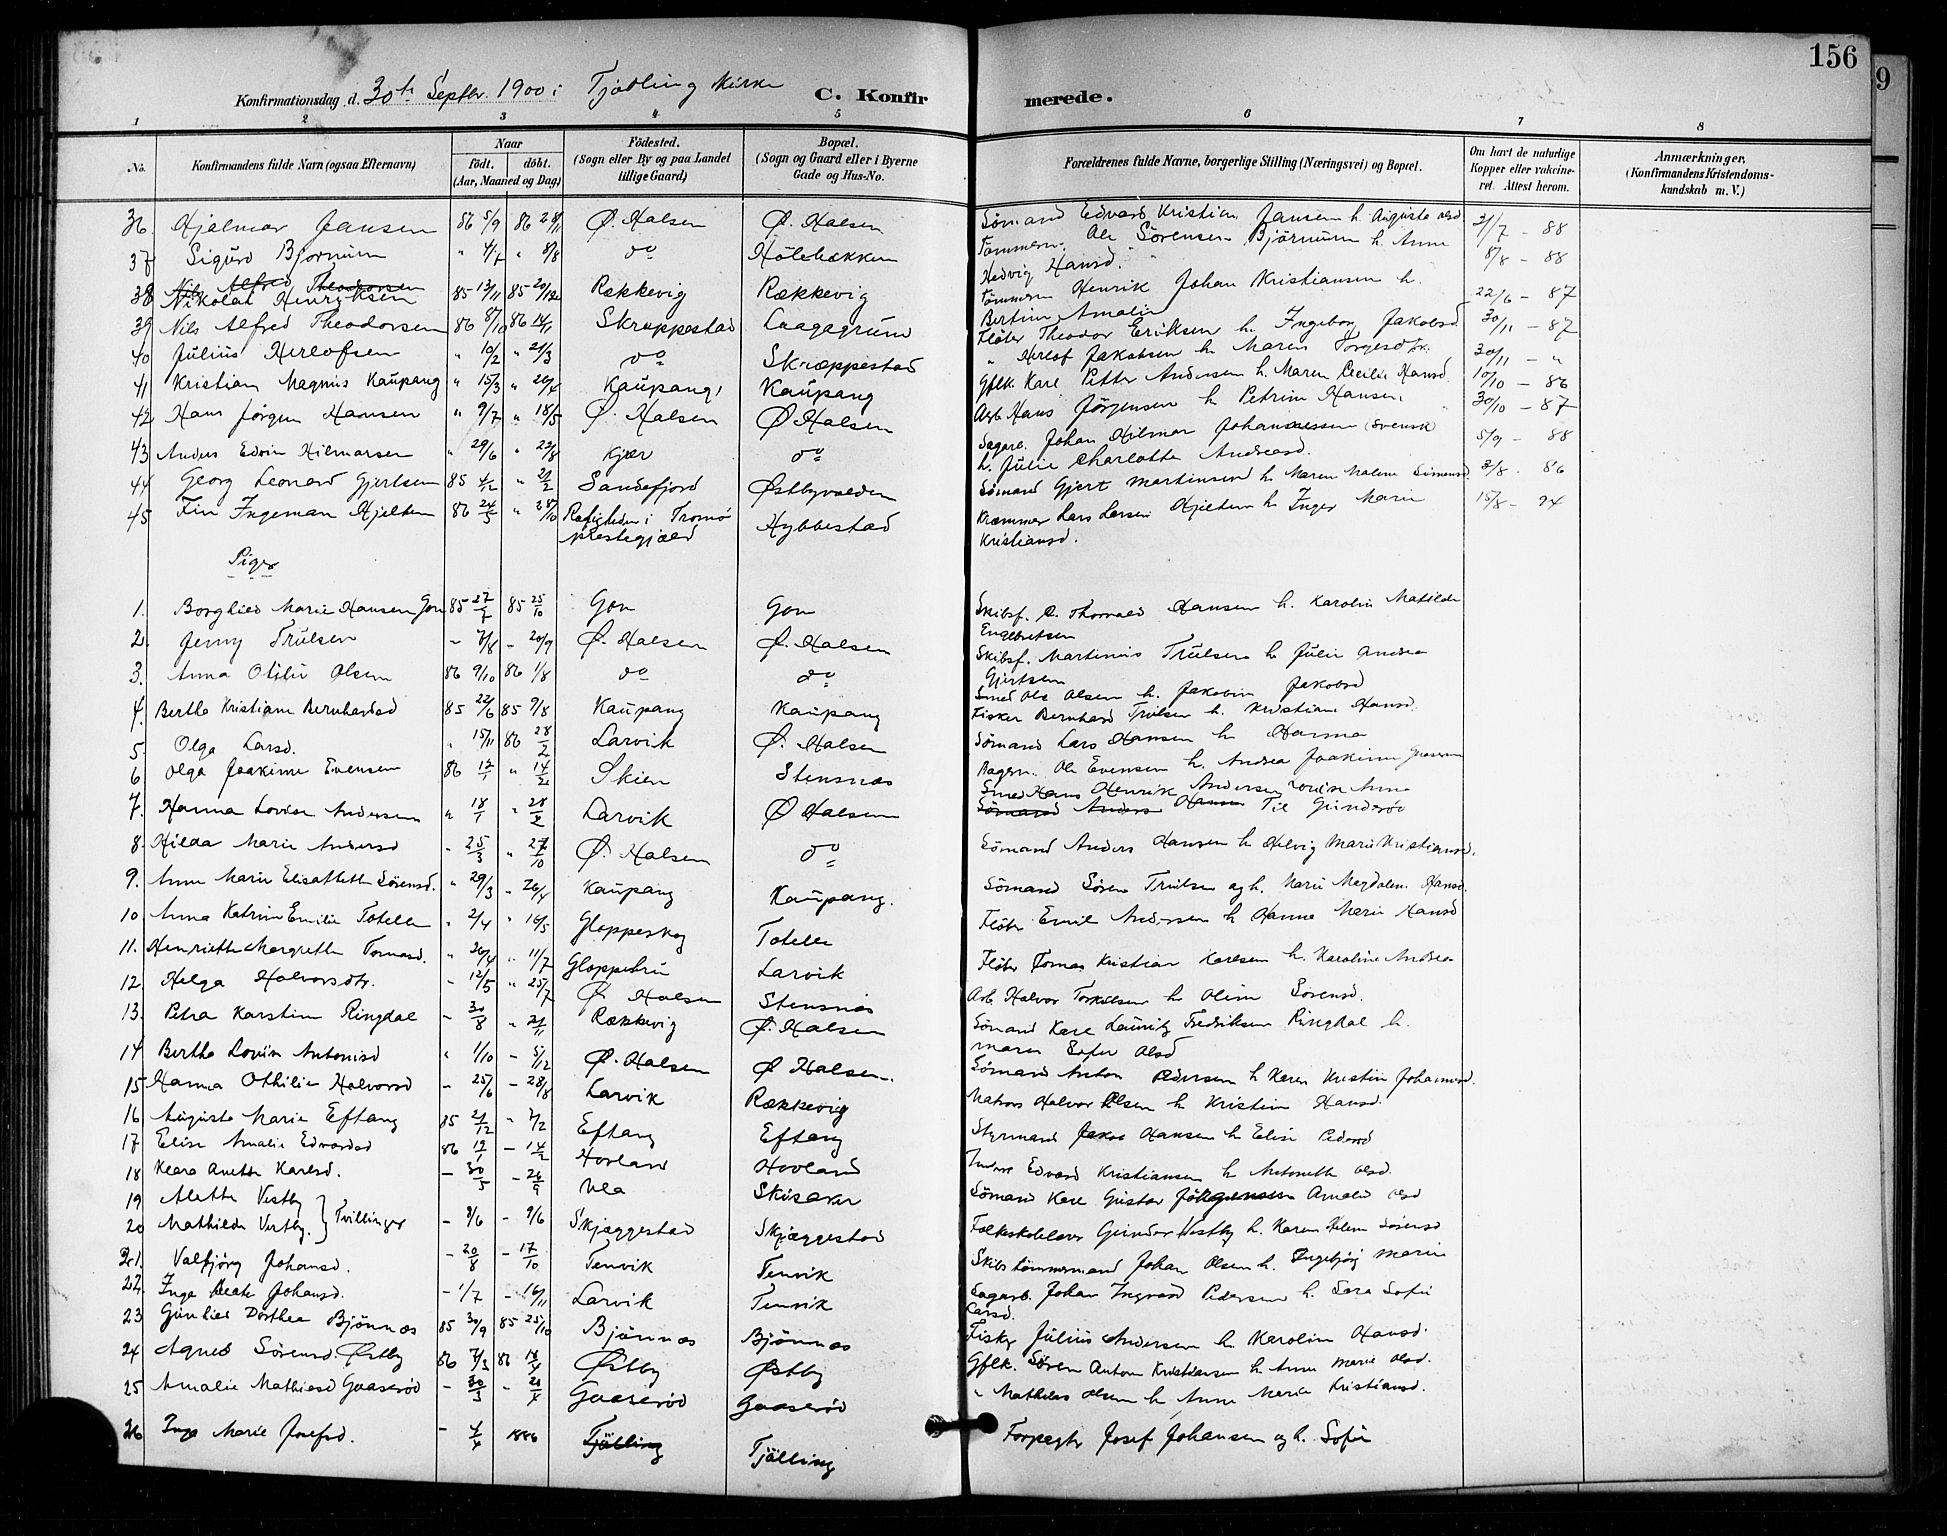 156
9
Konfirmationsdag d. 30te Septbr. 1900 i Tjödling Kirke C. Konfirmerede.
1 2 3 4 5 6 7 8
No. Konfirmandens fulde Navn (ogsaa Efternavn) Naar födt. döbt. (Aar, Maaned og Dag) Födested. (Sogn eller By og paa Landet tillige Gaard) Bopæl. (Sogn og Gaard eller i Byerne Gade og Hus-No. Forældrenes fulde Navne, borgerlige Stilling (Næringsvei) og Bopæl. Om havt de naturlige Kopper eller vakcineret. Attest herom. Anmærkninger, (Konfirmandens Kristendomskundskab m. V.)
36. Hjalmar Jansen 86 5/9 86 28/11 Ø. Halsen Ø. Halsen Sömand Edvard Kristian Jansen h. Augusta Olsd. 31/7 - 88
37 Sigurd Bjornum " 4/7 " 8/8 do Hölebakken Tömmerm. Ole Sörensen Bjørnum h. Anne Hedvig Hansd. 8/8 - 88
38 Nikolai Henriksen 85 13/11 85 20/12 Rækkevig Rækkevig Tömmerm Henrik Johan Kristiansen h. Bertine Amalie 22/6 - 87
39 Nils Alfred Theodorsen 86 8/10 86 14/11 Skrappestad Laagagrund Fløter Theodor Eriksen h. Ingeborg Jakobsd. 30/11 - 87
40 Julius Herlofsen " 10/2 " 21/3 do Skræppestad " Herlof Jakobsen h. Maren Torgersdtr. 30/11 - "
41 Kristian Magnus Kaupang " 15/3 " 26/4 Kaupang Kaupang Gflk. Karl Petter Andersen h. Maren Cecilie Hansd. 10/10 - 86
42 Hans Jörgen Hansen " 9/7 " 18/5 Ø. Halsen Ø Halsen Arb. Hans Jörgensen h. Petrine Hansen. 30/10 - 87
43 Anders Edvin Hilmarsen " 29/6 " 29/8 Kjær do Sagarb. Johan Hilmar Johannessen (svensk) h. Julie Charlotte Andreasd. 5/9 - 88
44 Georg Leonard Gjertsen 85 4/12 " 21/2 Sandefjord Østbyvalden Sömand Gjert Martinsen h. Maren Malene Simensd. 3/8 - 86
45 Fin Ingeman Hjeltem 86 24/5 " 28/10 i Tromö prestegjæld Hybbestad Kræmmer Lars Larsen Hjeltem h. Inger Marie Kristiansd. 15/8 - 94
Piger
1. Borghild Marie Hansen Gon 85 27/7 85 25/10 Gon Gon Skibsf. C. Thorvald Hansen h. Karolin Matilde Engebretsen
2. Jenny Trulsen - 7/8 - 20/9 Ø. Halsen Ø. Halsen Skibsf. Martinius Trulsen h. Julie Andrea Gjertsen
3. Anna Otilie Olsen 86 9/10 86 1/8 do do Smed Ole Olsen h. Jakobin Jakobsd
4. Berthe Kristiane Bernhardsd 85 22/6 85 9/8 Kaupang Kaupang Fisker Bernhard Trulsen h. Kristiane Hansd.
5 Olga Larsd. " 15/11 86 28/2 Larvik Ø. Halsen Sömand Lars Hansen h Hanna
6 Olga Joakime Evensen 86 12/1 " 14/2 Skien Stensnæs Bagerm. Ole Evensen h. Andrea Joakime
7. Hanna Lovise Andersen " 18/1 " 28/2 Larvik Ø Halsen Smed Hans Henrik Andersen Louise Anne Til Gunderöd
8. Hilda Marie Andersd - 25/3 " 27/10 Ø. Halsen do Sömand Anders Hansen h Helvig Marie Kristiansd.
9. Anne Marie Elisabeth Sörensd. " 29/3 - 26/4 Kaupang Kaupang. Sömand Sören Trulsen og h. Marie Magdalen. Hansd.
10. Anna Katrine Emilie Totelle " 2/4 " 16/5 Gloppeskog Totelle Fløter Emil Andersen h Hanne Marie Hansd
11. Henriette Margrethe Tomasd. " 26/4 " 11/7 Larvik Fløter Tomas Kristian Karlsen h. Karoline Andrea
12. Helga Halvorsdtr. - 12/5 " 25/7 Ø Halsen Stensnæs Arb. Halvor Torkilsen h Oline Sörensd.
13. Petra Karstine Ringdal - 30/8 " 21/11 Rækkevig Ø. Halsen Sömand Karl Lauritz Fredriksen Ringdal h. Maren Sofie Olsd
14 Berthe Lovise Antonisd " 1/10 - 5/12 Ø. Halsen Ø Halsen. Sömand Anton Pedersen h Karen Kristin Johannesd.
15 Hanna Othilie Halvorsd - 25/6 - 28/8 Larvik Rækkevig Matros Halvor Olsen h Kristine Hansd.
16 Augusta Marie Eftang 85 21/12 " 7/2 Eftang Eftang Styrmand Jakob Hansen h Elise Pedersd
17 Elise Amalie Edvardsd 86 12/1 - 14/2 Hovland Hovland Edvard Kristiansen h Antonette Olsd.
18 Klara Anette Karlsd. - 30/5 - 26/9 Ula Skisaker Sömand Karl Gustav Jörgensen Amalie Olsd
19 Alette Vestby } Tvillinger
20 Mathilde Vestby. - 8/6 - 9/6 Skjæggestad Skjæggestad Folkeskolelærer Gunder Vestby h. Karen Helene Sörensd
21. Valfjörg Johansd. - 20/8 - 17/10 Tenvik Tenvik Skibstömmermand Johan Olsen h. Ingebjörg Marie
22. Inga Beate Johansd. - 1/7 - 16/11 Larvik Tenvik Sagarb. Johan Ingvard Pedersen h. Sara Sofie Larsd.
23 Gunhild Dorthea Bjönnes 85 30/9 85 25/10 Bjönnes Bjönnes Fisker Julius Andersen h. Karoline Hansd.
24 Agnes Sörensd. Østby 86 7/3 86 18/4 Østby Østby Gflk. Sören Anton Kristiansen h. Anne Marie Olsd.
25 Amalie Mathiesd Gaaseröd - 30/3 - 20/4 Gaaseröd Gaaseröd " Mathias Olsen h Anne Marie Kristiansd.
26 Inga Marie Josefsd. - 4/4 1886 Tjölling Tjölling Forpagter Josef Johansen og h. Sofie